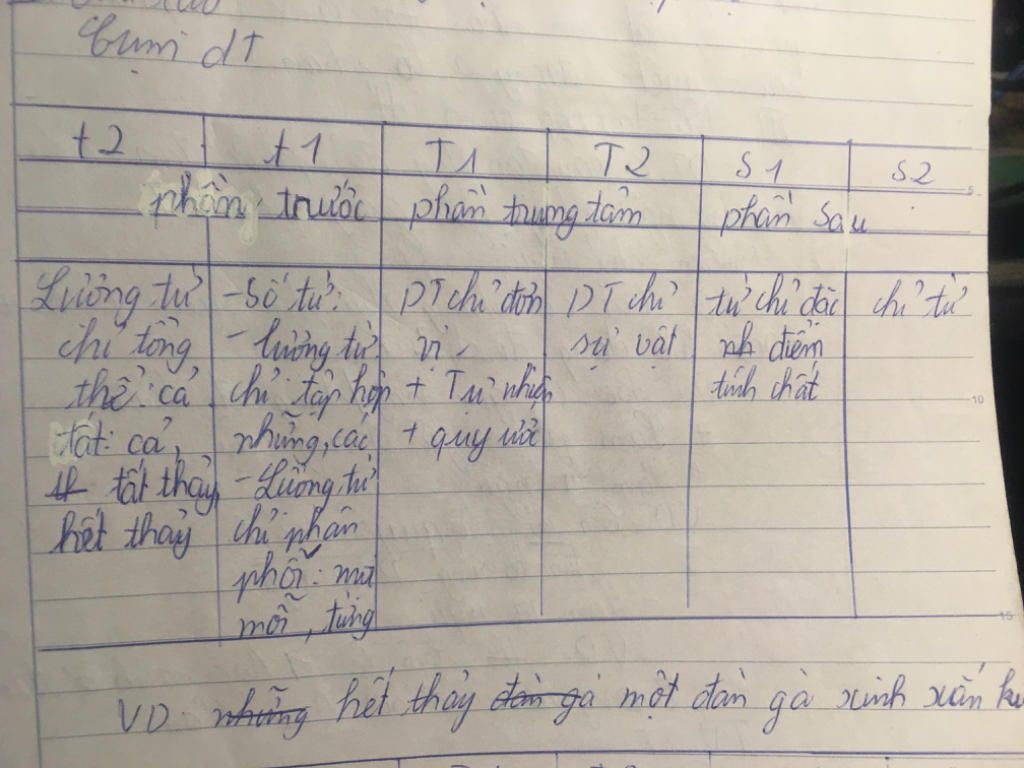 Cụm dT
t2 t1 T1 T2 S1 S2
phần trước phần trung tâm phần sau
Lượng từ -Số từ: DT chỉ đơn DT chỉ từ chỉ đặc chỉ từ
chỉ tổng - lượng từ vị sự vật điểm
thể: cả chỉ tập hợp + Tự nhiên tính chất
tất cả, những, các + quy ước
tất thảy, - Lượng từ
hết thảy chỉ phân
phối: mọi
mỗi, từng
VD: những hết thảy đàn gà một đàn gà xinh xắn